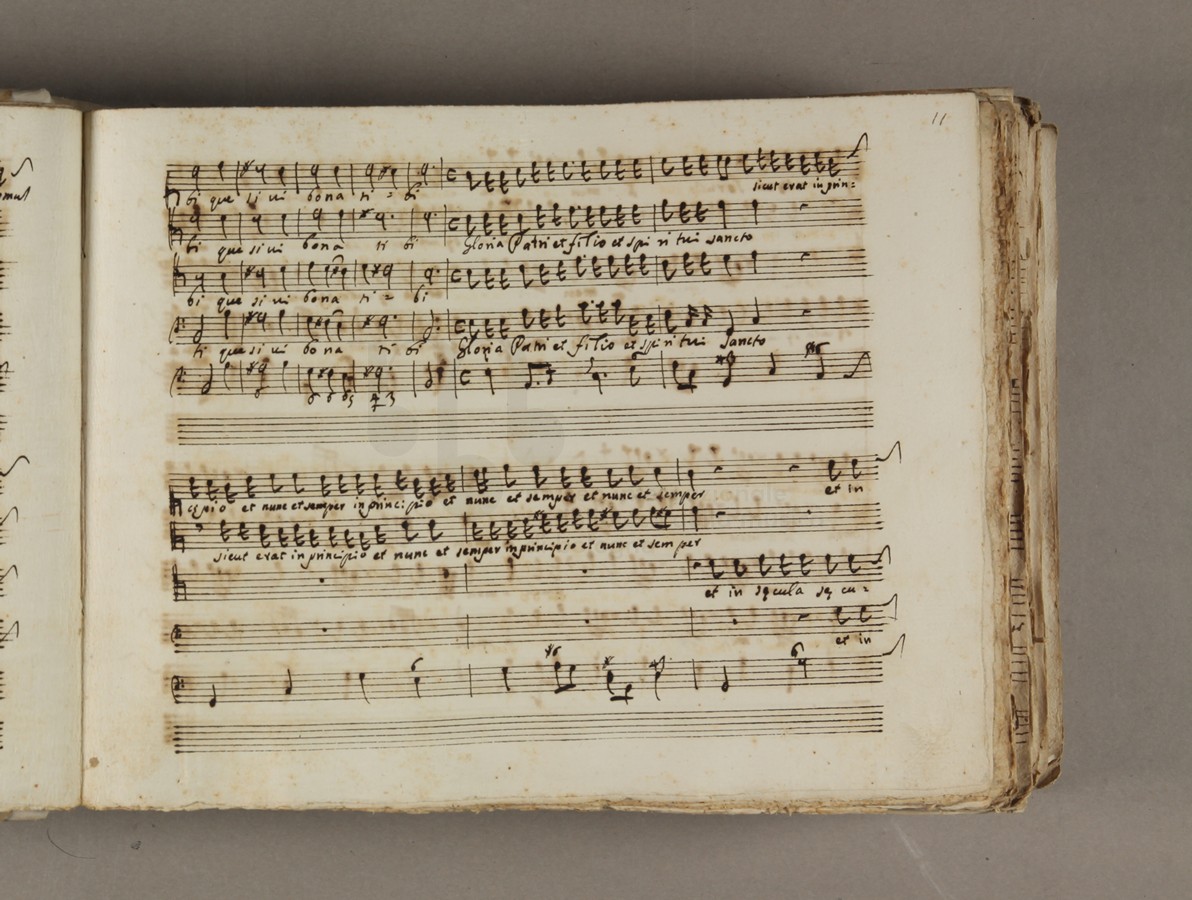 11
bi que si vi bona ti - bi
sicut erat in prin=
bi que si vi bona ti bi Gloria Patri et filio et spi ri tui sancto
bi que si vi bona ti = bi
ti que si vi bo na ti bi Gloria Patri et filio et spi ri tui Sancto
cipio et nunc et semper in principio et nunc et semper et nunc et semper et in
sicut erat in principio et nunc et semper in principio et nunc et sem per
et in secula se cu=
et in